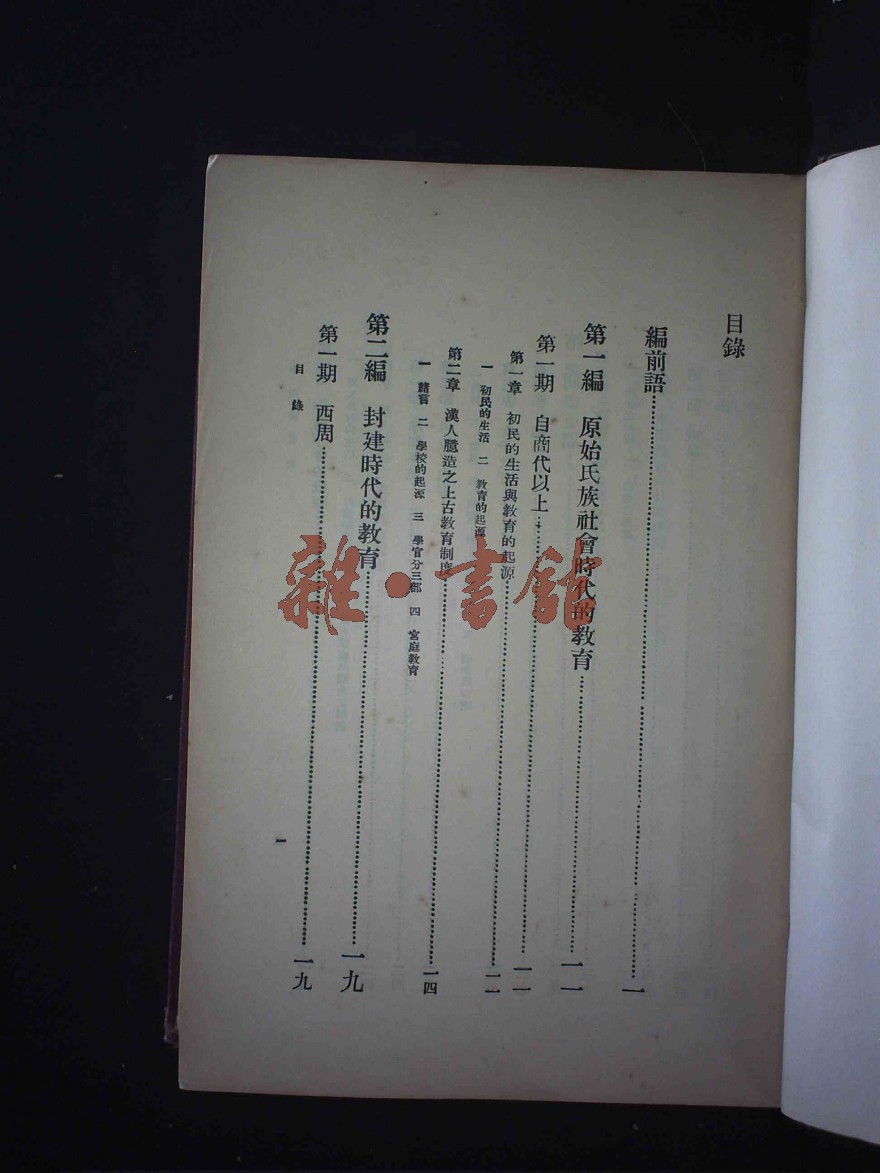 目錄
編前語……一
第一編 原始氏族社會時代的教育……一一
第一期 自商代以上……一一
第一章 初民的生活與教育的起源……一一
一 初民的生活 二 教育的起源
第二章 漢人臆造之上古教育制度……一四
一 緒言 二 學校的起源 三 學官分三部 四 宮庭教育
第二編 封建時代的教育……一九
第一期 西周……一九
目錄
一
雜·書館